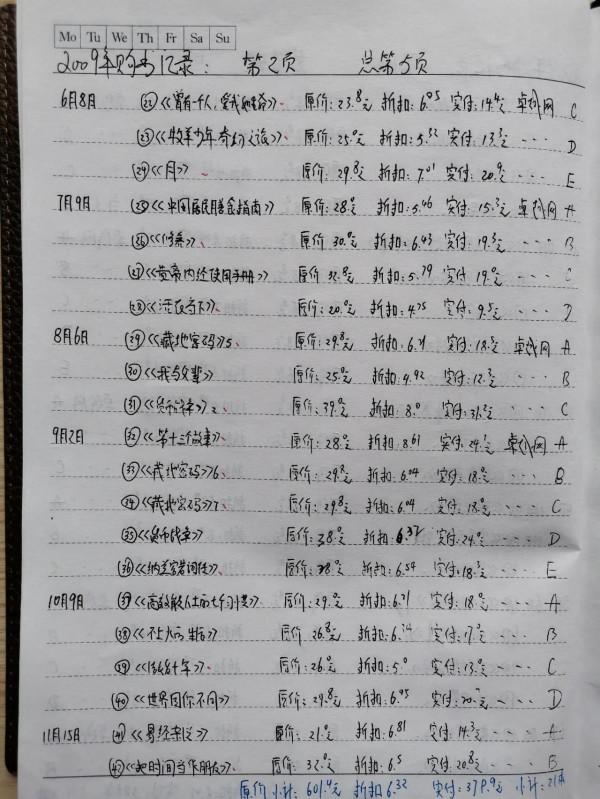 Mo Tu We Th Fr Sa Su
2009年购书记录: 第2页 总第5页
6月8日 ㉒《曾有一个人,爱我如生命》 原价:23.8元 折扣:6.05 实付:14.4元 卓越网 C
㉓《牧羊少年奇幻之旅》 原价:25.0元 折扣:5.32 实付:13.3元 D
㉔《月》 原价:29.8元 折扣:7.01 实付:20.9元 E
7月9日 ㉕《中国居民膳食指南》 原价:28.0元 折扣:5.46 实付:15.3元 卓越网 A
㉖ 原价:30.0元 折扣:6.43 实付:19.3元 B
㉗《黄帝内经使用手册》 原价 折扣:5.79 实付:19.0元 C
㉘《活在当下》 原价:20.0元 折扣:4.75 实付:9.5元 D
8月6日 ㉙《藏地密码》5 原价:29.8元 折扣:6.21 实付:18.5元 卓越网 A
㉚《我与父辈》 原价:25.0元 折扣:4.92 实付:12.3元 B
㉛《货币战争》2 原价:39.0元 折扣:8.0 实付:31.2元 C
9月2日 ㉜《第十三个故事》 原价:28.0元 折扣:8.61 实付:24.1元 卓越网 A
㉝《藏地密码》6 原价:29.8元 折扣:6.04 实付:18.0元 B
㉞《藏地密码》7 原价:29.8元 折扣:6.04 实付:18.0元 C
㉟《货币战争》 原价:38.0元 折扣:6.32 实付:24.0元 D
㊱《纳兰容若词传》 原价:28.0元 折扣:6.54 实付:18.3元 E
10月9日 ㊲《高效能人士的七个习惯》 原价:29.0元 折扣:6.21 实付:18.0元 A
㊳《不上火的生活》 原价:26.8元 折扣:6.34 实付:17.0元 B
㊴ 原价:26.0元 折扣:5.0 实付:13.0元 C
㊵《世界因你不同》 原价:29.8元 折扣:6.95 实付:20.7元 D
11月15日 ㊶《易经杂说》 原价:21.0元 折扣:6.81 实付:14.3元 A
㊷《把时间当作朋友》 原价:32.0元 折扣:6.5 实付:20.8元 B
原价小计:601.4元 折扣6.32 实付:379.9元 小计:21本